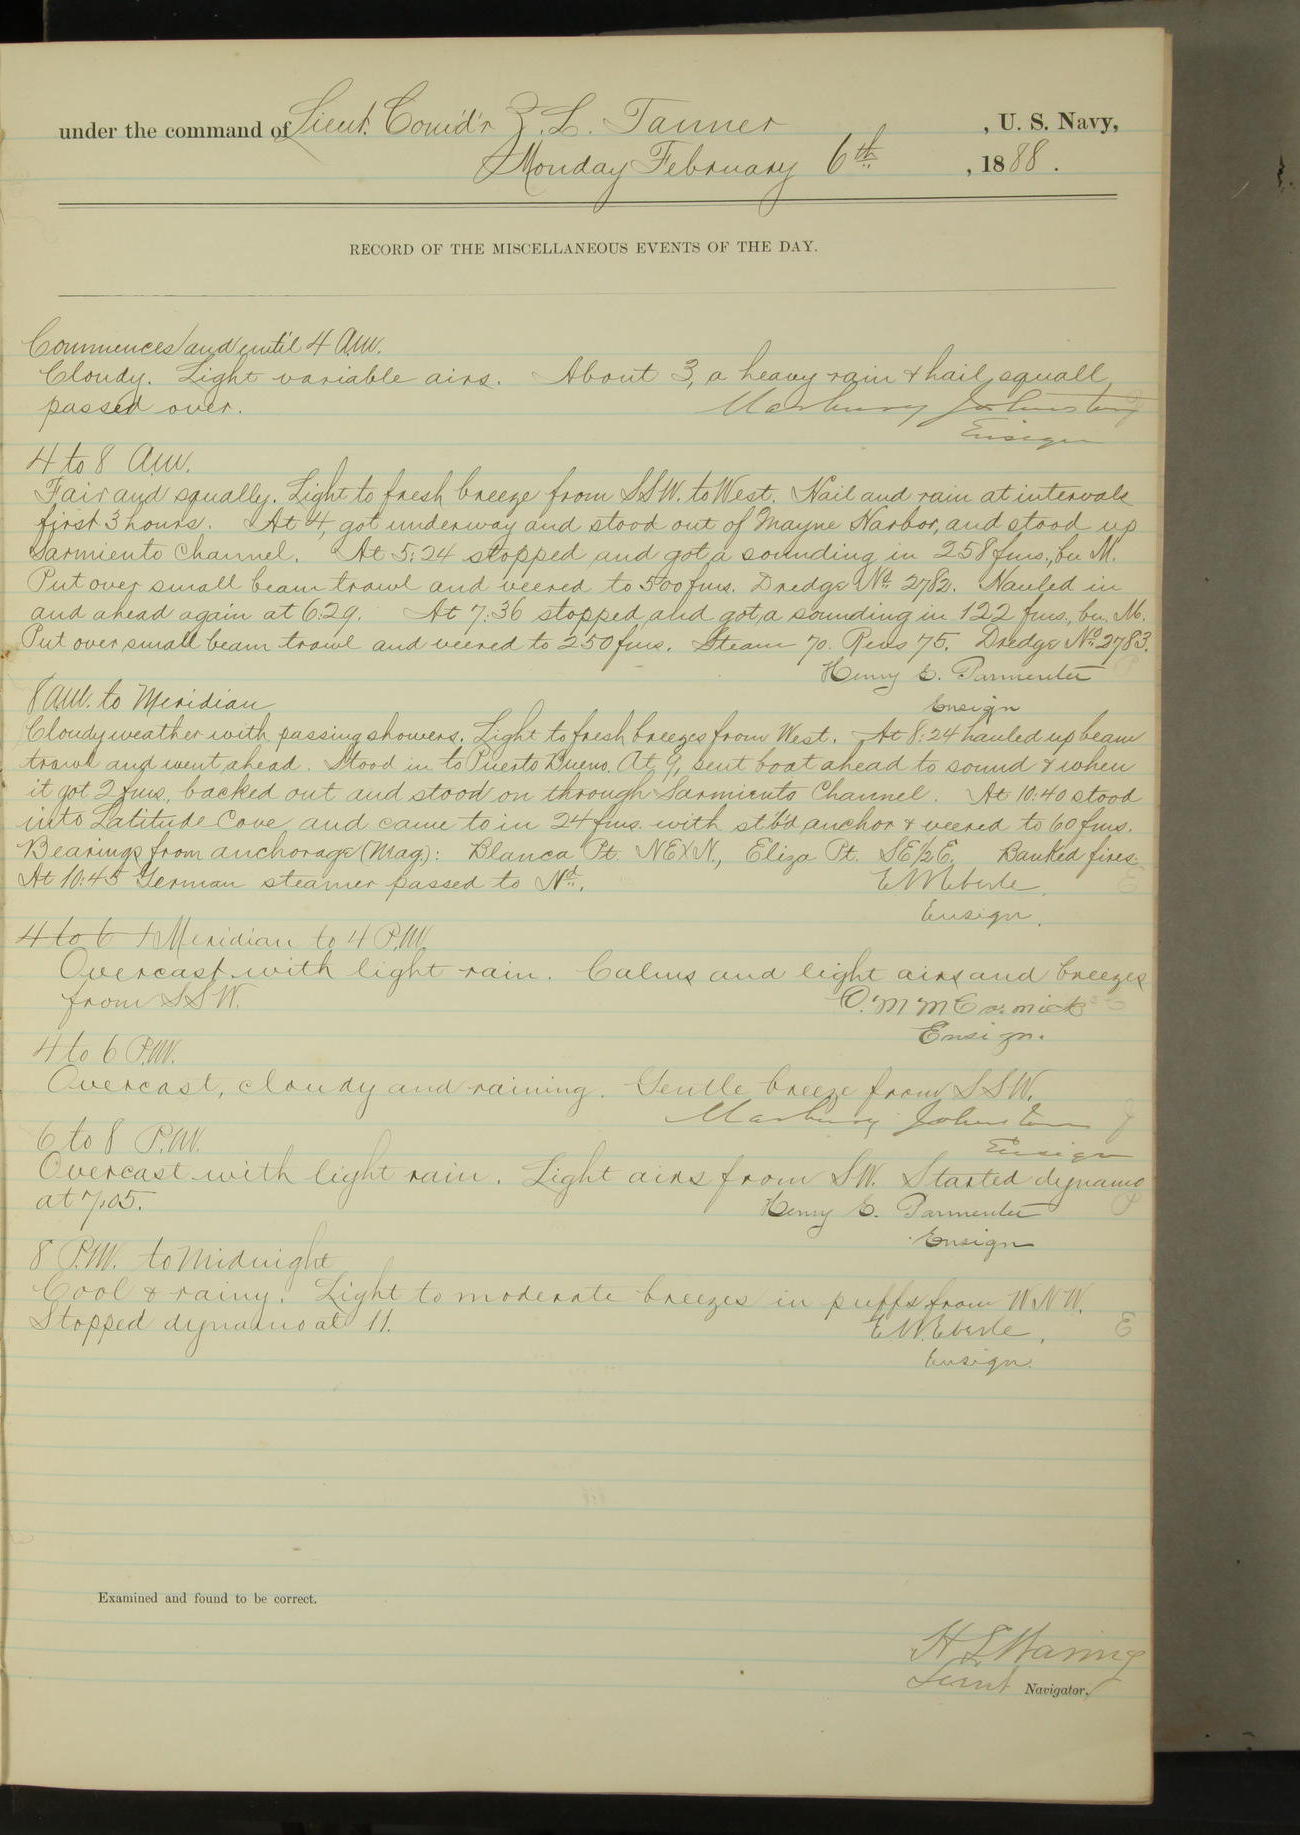 under the command of Lieut. Comd'r Z. L. Tanner, U. S. Navy,
Monday February 6th, 1888.
RECORD OF THE MISCELLANEOUS EVENTS OF THE DAY.
Commences and until 4 A.M.
Cloudy. Light variable airs. About 3, a heavy rain & hail squall
passed over. Marbury Johnston
Ensign
4 to 8 A.M.
Fair and squally. Light to fresh breeze from SSW. to West. Hail and rain at intervals
first 3 hours. At 4, got underway and stood out of Mayne Harbor, and stood up
Sarmiento Channel. At 5:24 stopped and got a sounding in 258 fms., bu. M.
Put over small beam trawl and veered to 500 fms. Dredge No. 2782. Hauled in
and ahead again at 6:29. At 7:36 stopped and got a sounding in 122 fms., bu. M.
Put over small beam trawl and veered to 250 fms. Steam 70. Revs 75. Dredge No. 2783.
Henry E. Parmenter
Ensign
8 A.M. to Meridian
Cloudy weather with passing showers. Light to fresh breezes from West. At 8:24 hauled up beam
trawl and went ahead. Stood in to Puerto Bueno. At 9, sent boat ahead to sound & when
it got 2 fms., backed out and stood on through Sarmiento Channel. At 10:40 stood
into Latitude Cove and came to in 24 fms. with stb'd anchor & veered to 60 fms.
Bearings from anchorage (Mag): Blanca Pt. NExN., Eliza Pt. SE1/2E. Banked fires.
At 10:45 German steamer passed to Nd.. E W Eberle.
Ensign.
4 to 6 Meridian to 4 P.M.
Overcast with light rain. Calms and light airs and breezes
from SSW. O. M McCormick
Ensign.
4 to 6 P.M.
Overcast, cloudy and raining. Gentle breeze from SSW.
Marbury Johnston
6 to 8 P.M.
Ensign
Overcast with light rain. Light airs from SW. Started dynamo
at 7:05. Henry E. Parmenter
Ensign
8 P.M. to Midnight
Cool & rainy. Light to moderate breezes in puffs from WNW.
Stopped dynamo at 11. E W. Eberle. E
Ensign.
Examined and found to be correct.
H S Waring
Lieut Navigator.